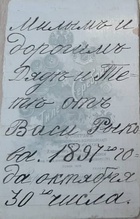 Милымъ и
дорогимъ
Дядѣ и Те-
тѣ отъ
Васи Рыко
ва. 1897 го
да октября
30 го числа.